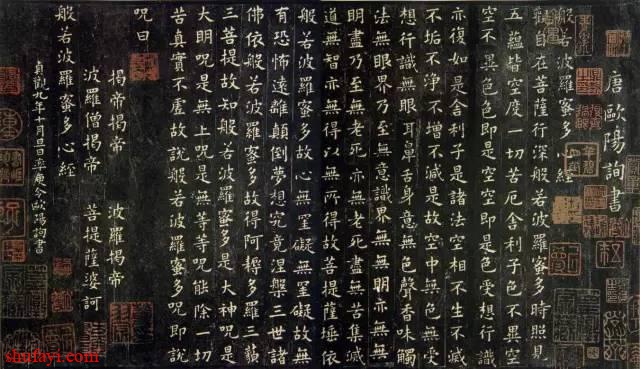 唐歐陽詢書
般若波羅蜜多心經
觀自在菩薩行深般若波羅蜜多時照見
五蘊皆空度一切苦厄舍利子色不異空
空不異色色即是空空即是色受想行識
亦復如是舍利子是諸法空相不生不滅
不垢不淨不增不減是故空中無色無受
想行識無眼耳鼻舌身意無色聲香味觸
法無眼界乃至無意識界無無明亦無無
明盡乃至無老死亦無老死盡無苦集滅
道無智亦無得以無所得故菩提薩埵依
般若波羅蜜多故心無罣礙無罣礙故無
有恐怖遠離顛倒夢想究竟涅槃三世諸
佛依般若波羅蜜多故得阿耨多羅三藐
三菩提故知般若波羅蜜多是大神呪是
大明呪是無上呪是無等等呪能除一切
苦真實不虛故說般若波羅蜜多呪即說
呪曰
揭帝揭帝 波羅揭帝
波羅僧揭帝 菩提薩婆訶
般若波羅蜜多心經
貞觀九年十月旦率更令歐陽詢書
shufayi.com